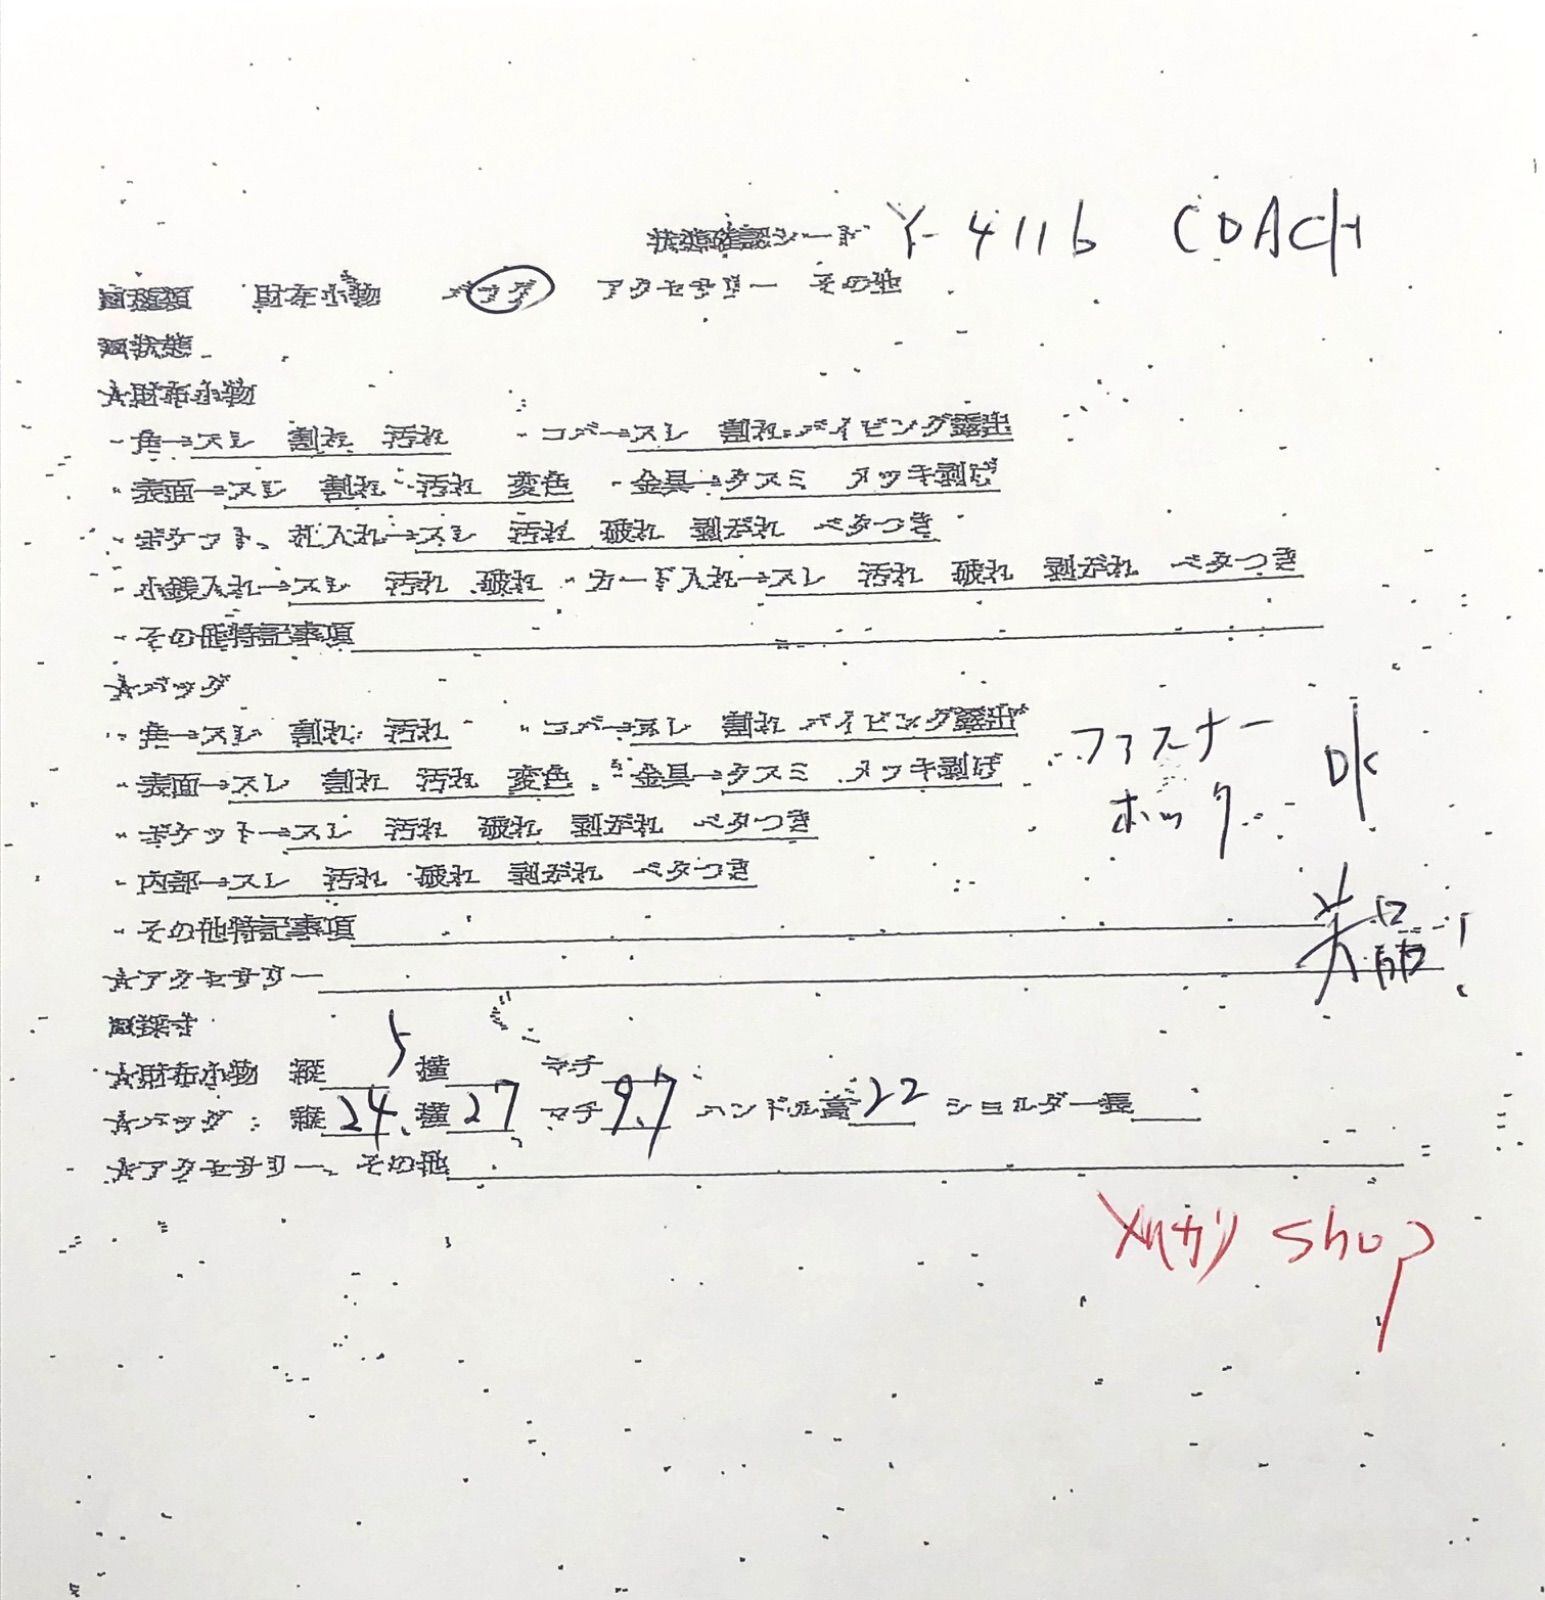 状態確認シート Y-4116 COACH
■種類 財布小物 バッグ アクセサリー その他
■状態
☆財布小物
・角→スレ 割れ 汚れ ・コバ→スレ 割れ パイピング露出
・表面→スレ 割れ 汚れ 変色 ・金具→クスミ メッキ剥げ
・ポケット、札入れ→スレ 汚れ 破れ 剥がれ ベタつき
・小銭入れ→スレ 汚れ 破れ ・カード入れ→スレ 汚れ 破れ 剥がれ ベタつき
・その他特記事項
☆バッグ
・角→スレ 割れ 汚れ ・コバ→スレ 割れ パイピング露出
・表面→スレ 割れ 汚れ 変色 ・金具→クスミ メッキ剥げ
ファスナー
ホック OK
・ポケット→スレ 汚れ 破れ 剥がれ ベタつき
・内部→スレ 汚れ 破れ 剥がれ ベタつき
・その他特記事項
美品!
☆アクセサリー
■採寸
☆財布小物 縦 横 マチ
☆バッグ: 縦24、横27 マチ9.7 ハンドル高22 ショルダー長
☆アクセサリー、その他
メルカリ shop